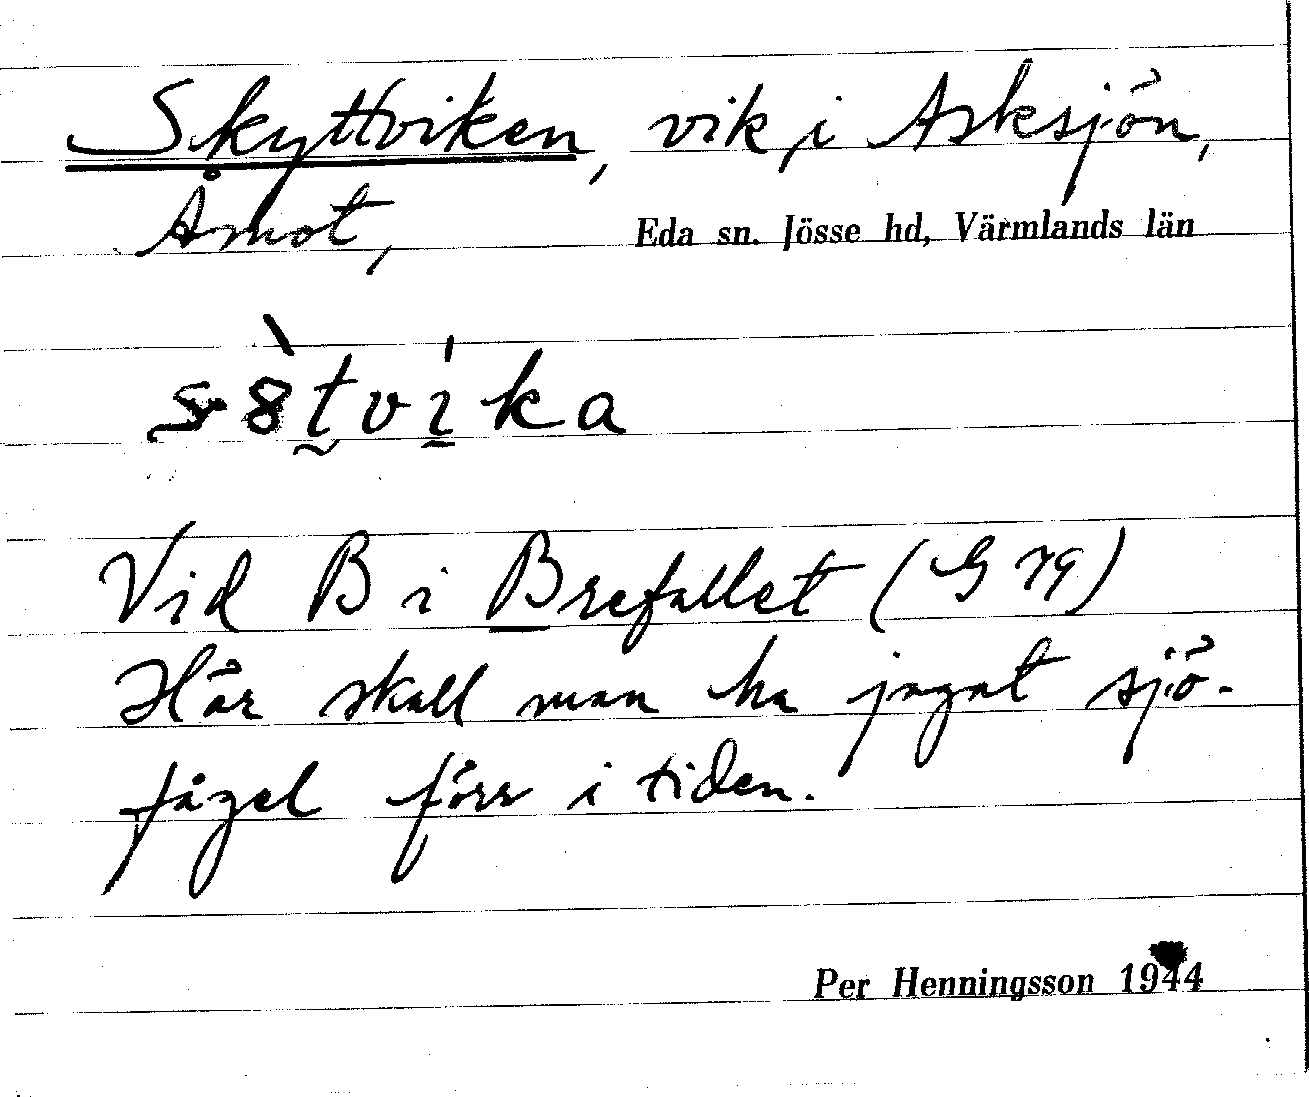 Skyttviken, vik i Asksjön,
Åmot, Eda sn. Jösse hd, Värmlands län
s8̀tvi̍ka
Vid B i Brefallet (G 79)
Här skall man ha jagat sjö-
fågel förr i tiden.
Per Henningsson 1944